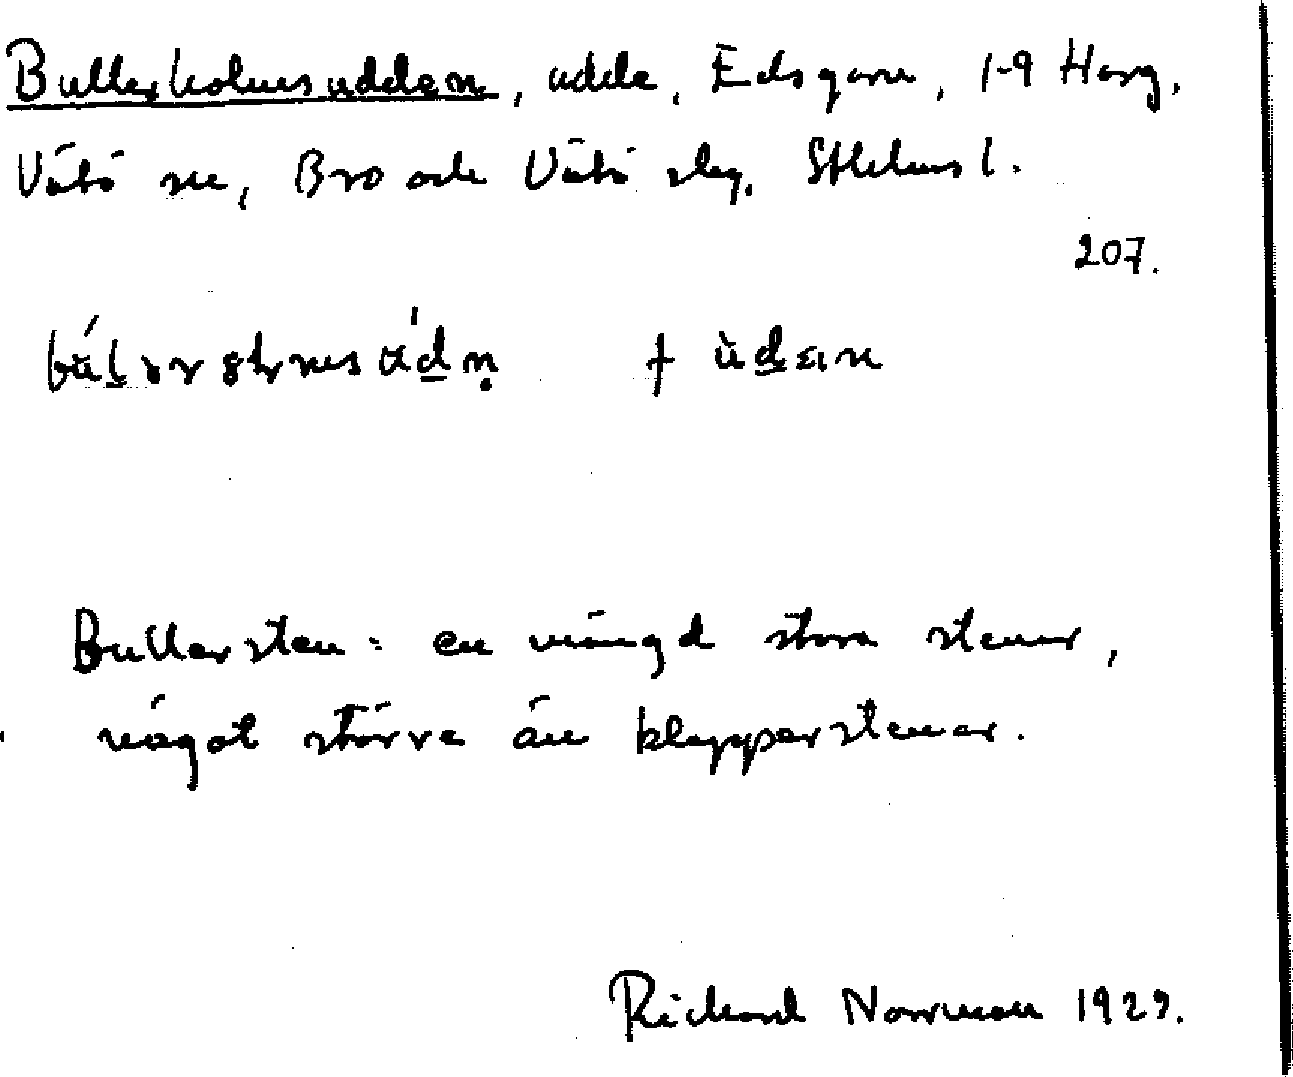 Bullerholmsudden, udde, Edsgarn, 1-9 Harg,
Vätö sn, Bro och Vätö slg, Sthlms l.
207.
Bullersten = en mängd stora stenar,
något större än klapperstenar.
Richard Norrman 1929.